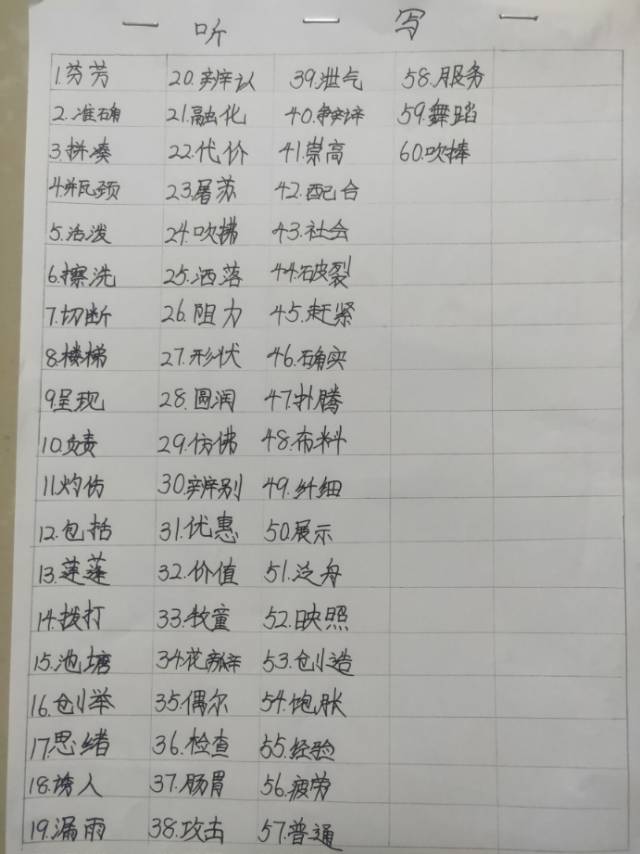 一听一写一
1.芬芳
2.准确
3.拼凑
4.瓶颈
5.活泼
6.擦洗
7.切断
8.楼梯
9.呈现
10.负责
11.灼伤
12.包括
13.莲蓬
14.拨打
15.池塘
16.创举
17.思绪
18.诱人
19.漏雨
20.辨认
21.融化
22.代价
23.屠苏
24.吹拂
25.洒落
26.阻力
27.形状
28.圆润
29.仿佛
30.辨别
31.优惠
32.价值
33.牧童
34.花瓣
35.偶尔
36.检查
37.肠胃
38.攻击
39.泄气
40.争辩
41.崇高
42.配合
43.社会
44.破裂
45.赶紧
46.确实
47.扑腾
48.布料
49.纤细
50.展示
51.泛舟
52.映照
53.创造
54.饱胀
55.经验
56.疲劳
57.普通
58.服务
59.舞蹈
60.吹捧